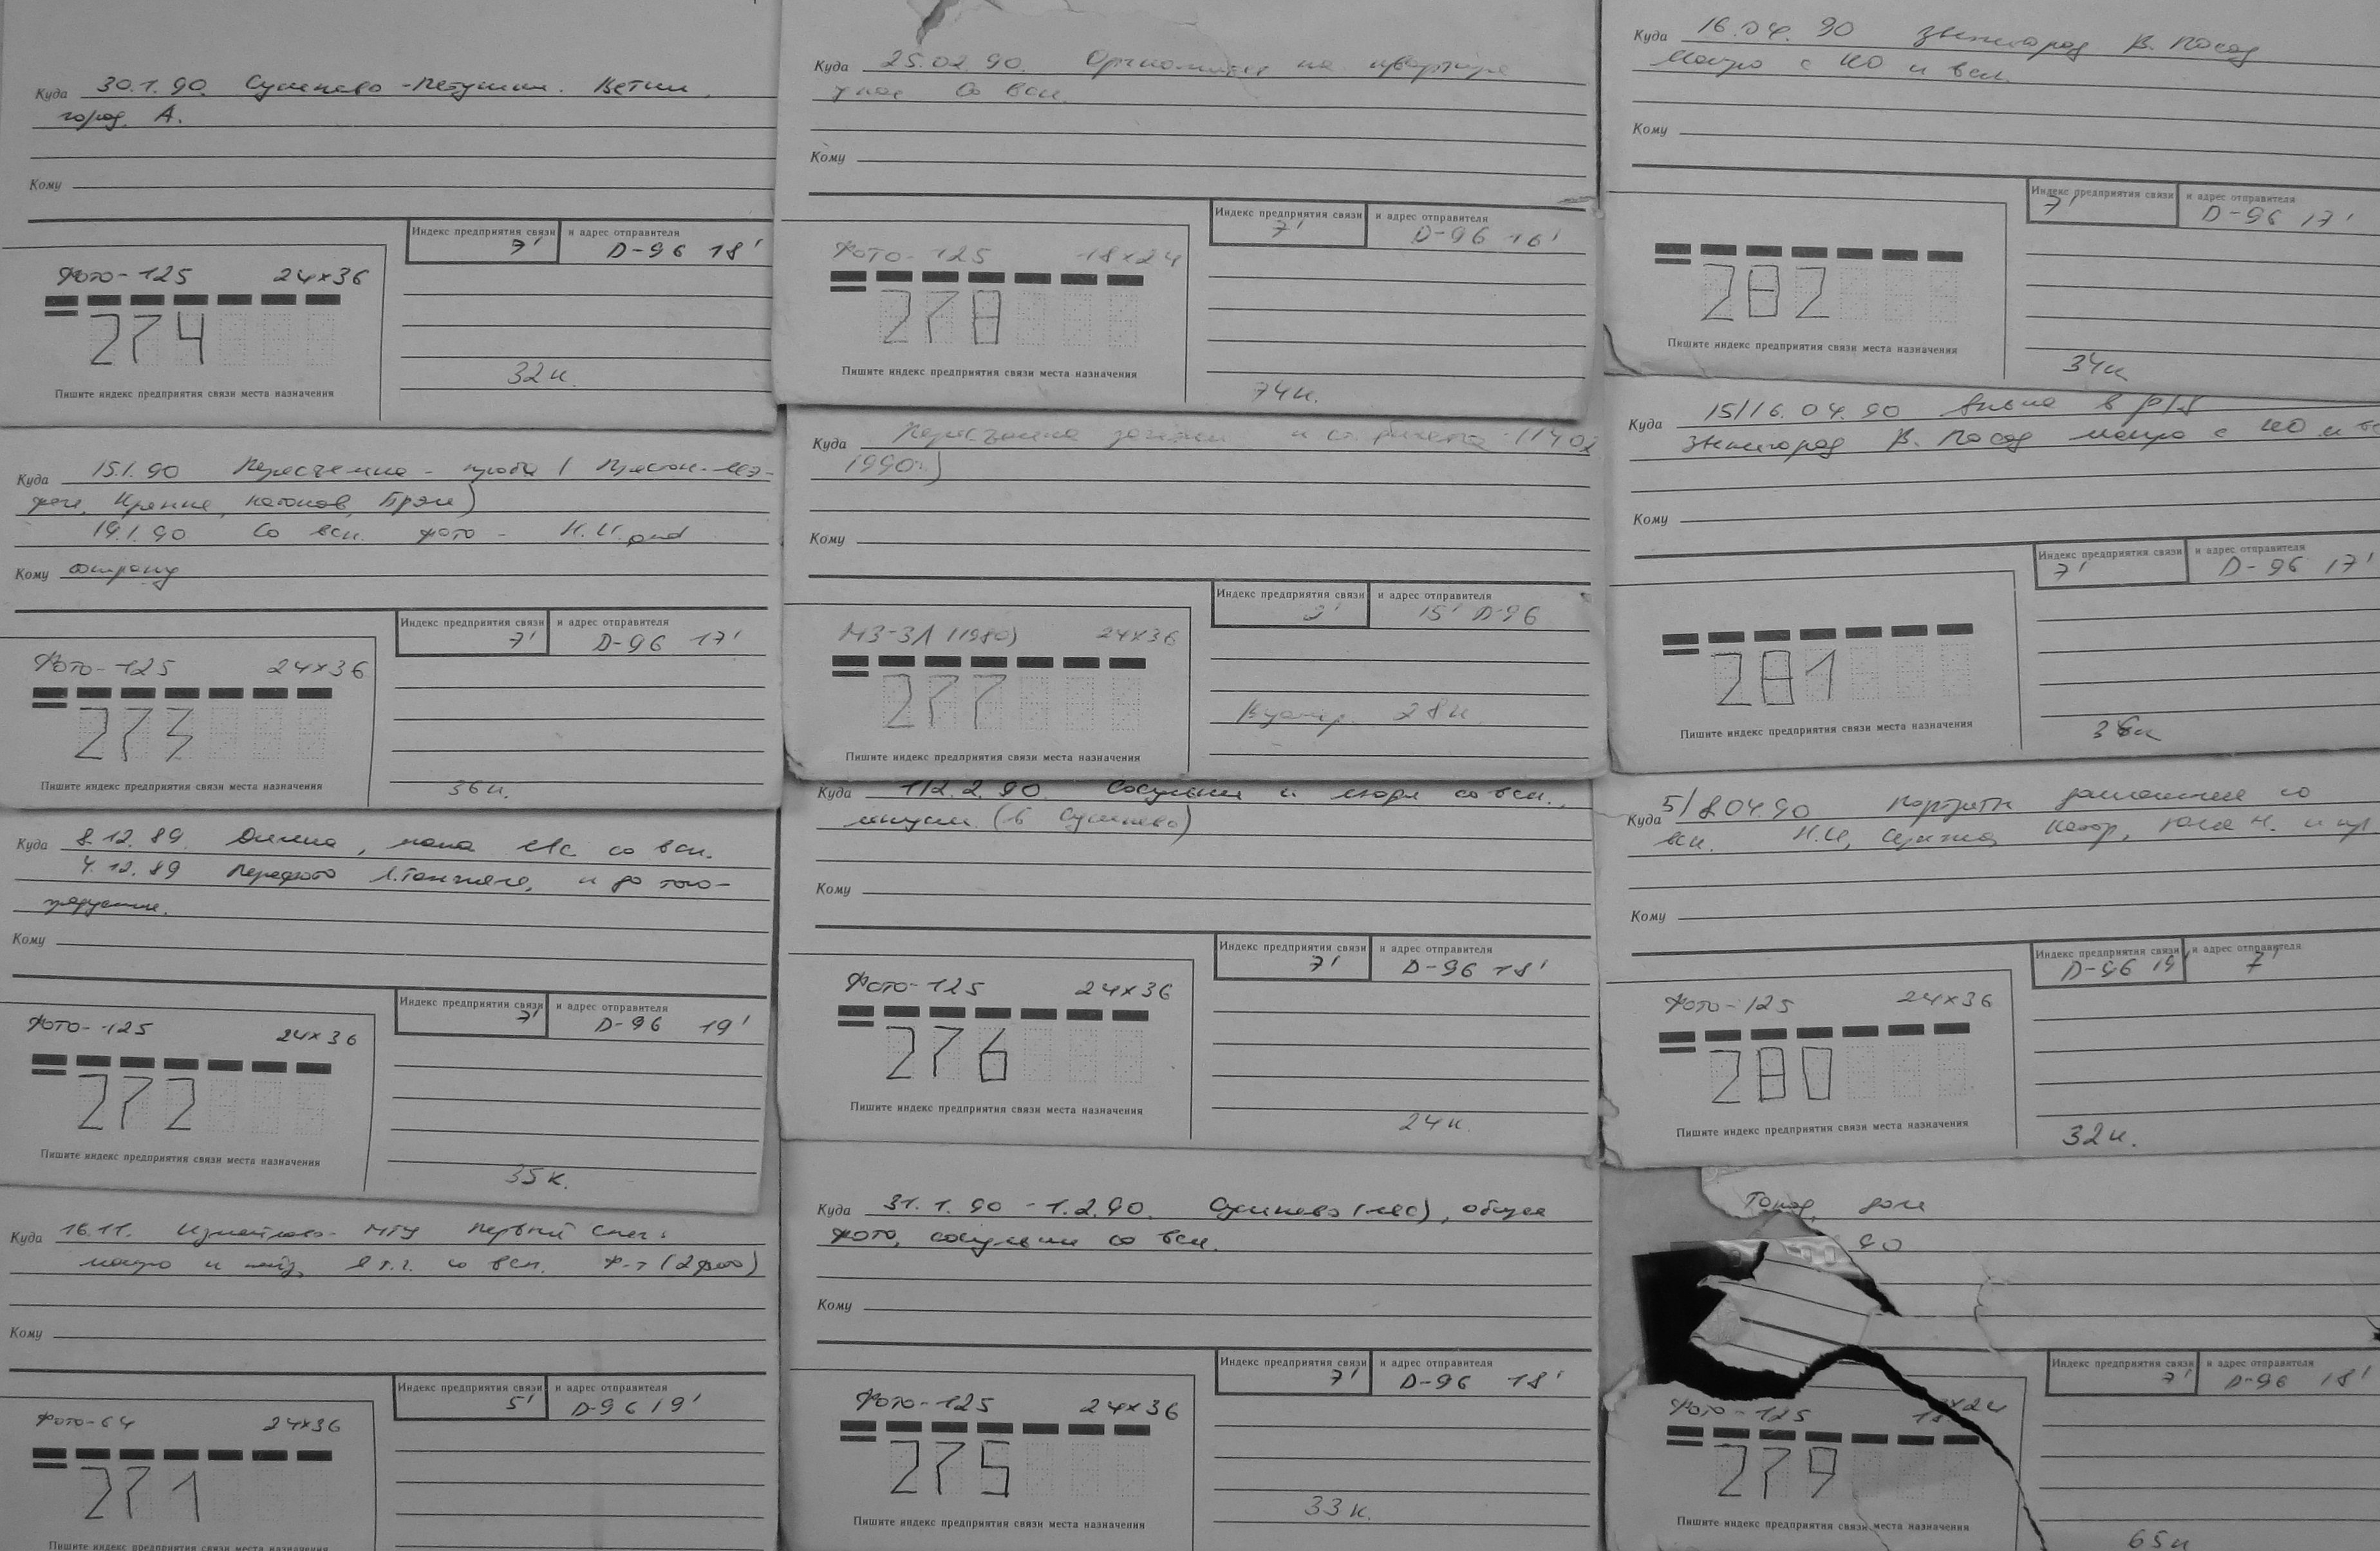 Куда 30.1.90. Сушнево - Петушки. Ветки,
город. А.
Кому
Индекс предприятия связи и адрес отправителя
7' D-96 18'
Фото-125 24×36
274
32к.
Пишите индекс предприятия связи места назначения
Куда 15.1.90 Пересъемка - проба (
Кропке, Брэм)
19.1.90 Со всп. фото - Н.И.
Кому
Индекс предприятия связи и адрес отправителя
7' D-96 17'
Фото-125 24×36
273
36к.
Пишите индекс предприятия связи места назначения
Куда 8.12.89. мама со всп.
4.12.89 Перефото и до того-
Кому
Индекс предприятия связи и адрес отправителя
7' D-96 19'
Фото-125 24×36
272
35к.
Пишите индекс предприятия связи места назначения
Куда 16.11. Измайлово - МГУ Первый снег:
макро и со всп. (2 фото)
Кому
Индекс предприятия связи и адрес отправителя
5' D-96 19'
Фото-64 24×36
271
Пишите индекс предприятия связи места назначения
Куда 25.02.90. на квартире
у нас со всп.
Кому
Индекс предприятия связи и адрес отправителя
7' D-96 16'
Фото-125 18×24
278
74к.
Пишите индекс предприятия связи места назначения
Куда Пересъемка и ст. билета
1990г.)
Кому
Индекс предприятия связи и адрес отправителя
15' D-96
МЗ-3Л (1980) 24×36
277
28к.
Пишите индекс предприятия связи места назначения
Куда 1/2.2.90. Сосульки и со всп.,
(в Сушнево)
Кому
Индекс предприятия связи и адрес отправителя
7' D-96 18'
Фото-125 24×36
276
24к.
Пишите индекс предприятия связи места назначения
Куда 31.1.90 - 1.2.90. Сушнево (лес), общее
фото, сосульки со всп.
Кому
Индекс предприятия связи и адрес отправителя
7' D-96 18'
Фото-125 24×36
275
33к.
Пишите индекс предприятия связи места назначения
Куда 16.04.90 Звенигород В. Посад
Макро с КО и всп.
Кому
Индекс предприятия связи и адрес отправителя
7' D-96 17'
282
34к
Пишите индекс предприятия связи места назначения
Куда 15/16.04.90 в
Звенигород В. Посад макро с КО и вс
Кому
Индекс предприятия связи и адрес отправителя
7' D-96 17'
281
Пишите индекс предприятия связи места назначения
Куда 5/8.04.90 Портреты домашние со
всп. Н.И, Юля Н. и пр
Кому
Индекс предприятия связи и адрес отправителя
D-96 19' 7'
Фото-125 24×36
280
32к.
Пишите индекс предприятия связи места назначения
Город, дом
90
Индекс предприятия связи и адрес отправителя
7' D-96 18'
Фото-125 18×24
279
65к
Пишите индекс предприятия связи места назначения